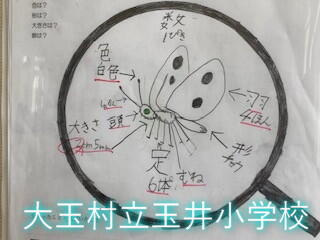 色は?
形は?
大きさは?
数は?
数
1ぴき
色
白色
羽
4本
大きさ
頭
2cm5mm
形
チョウ
足
6本
すね
大玉村立玉井小学校